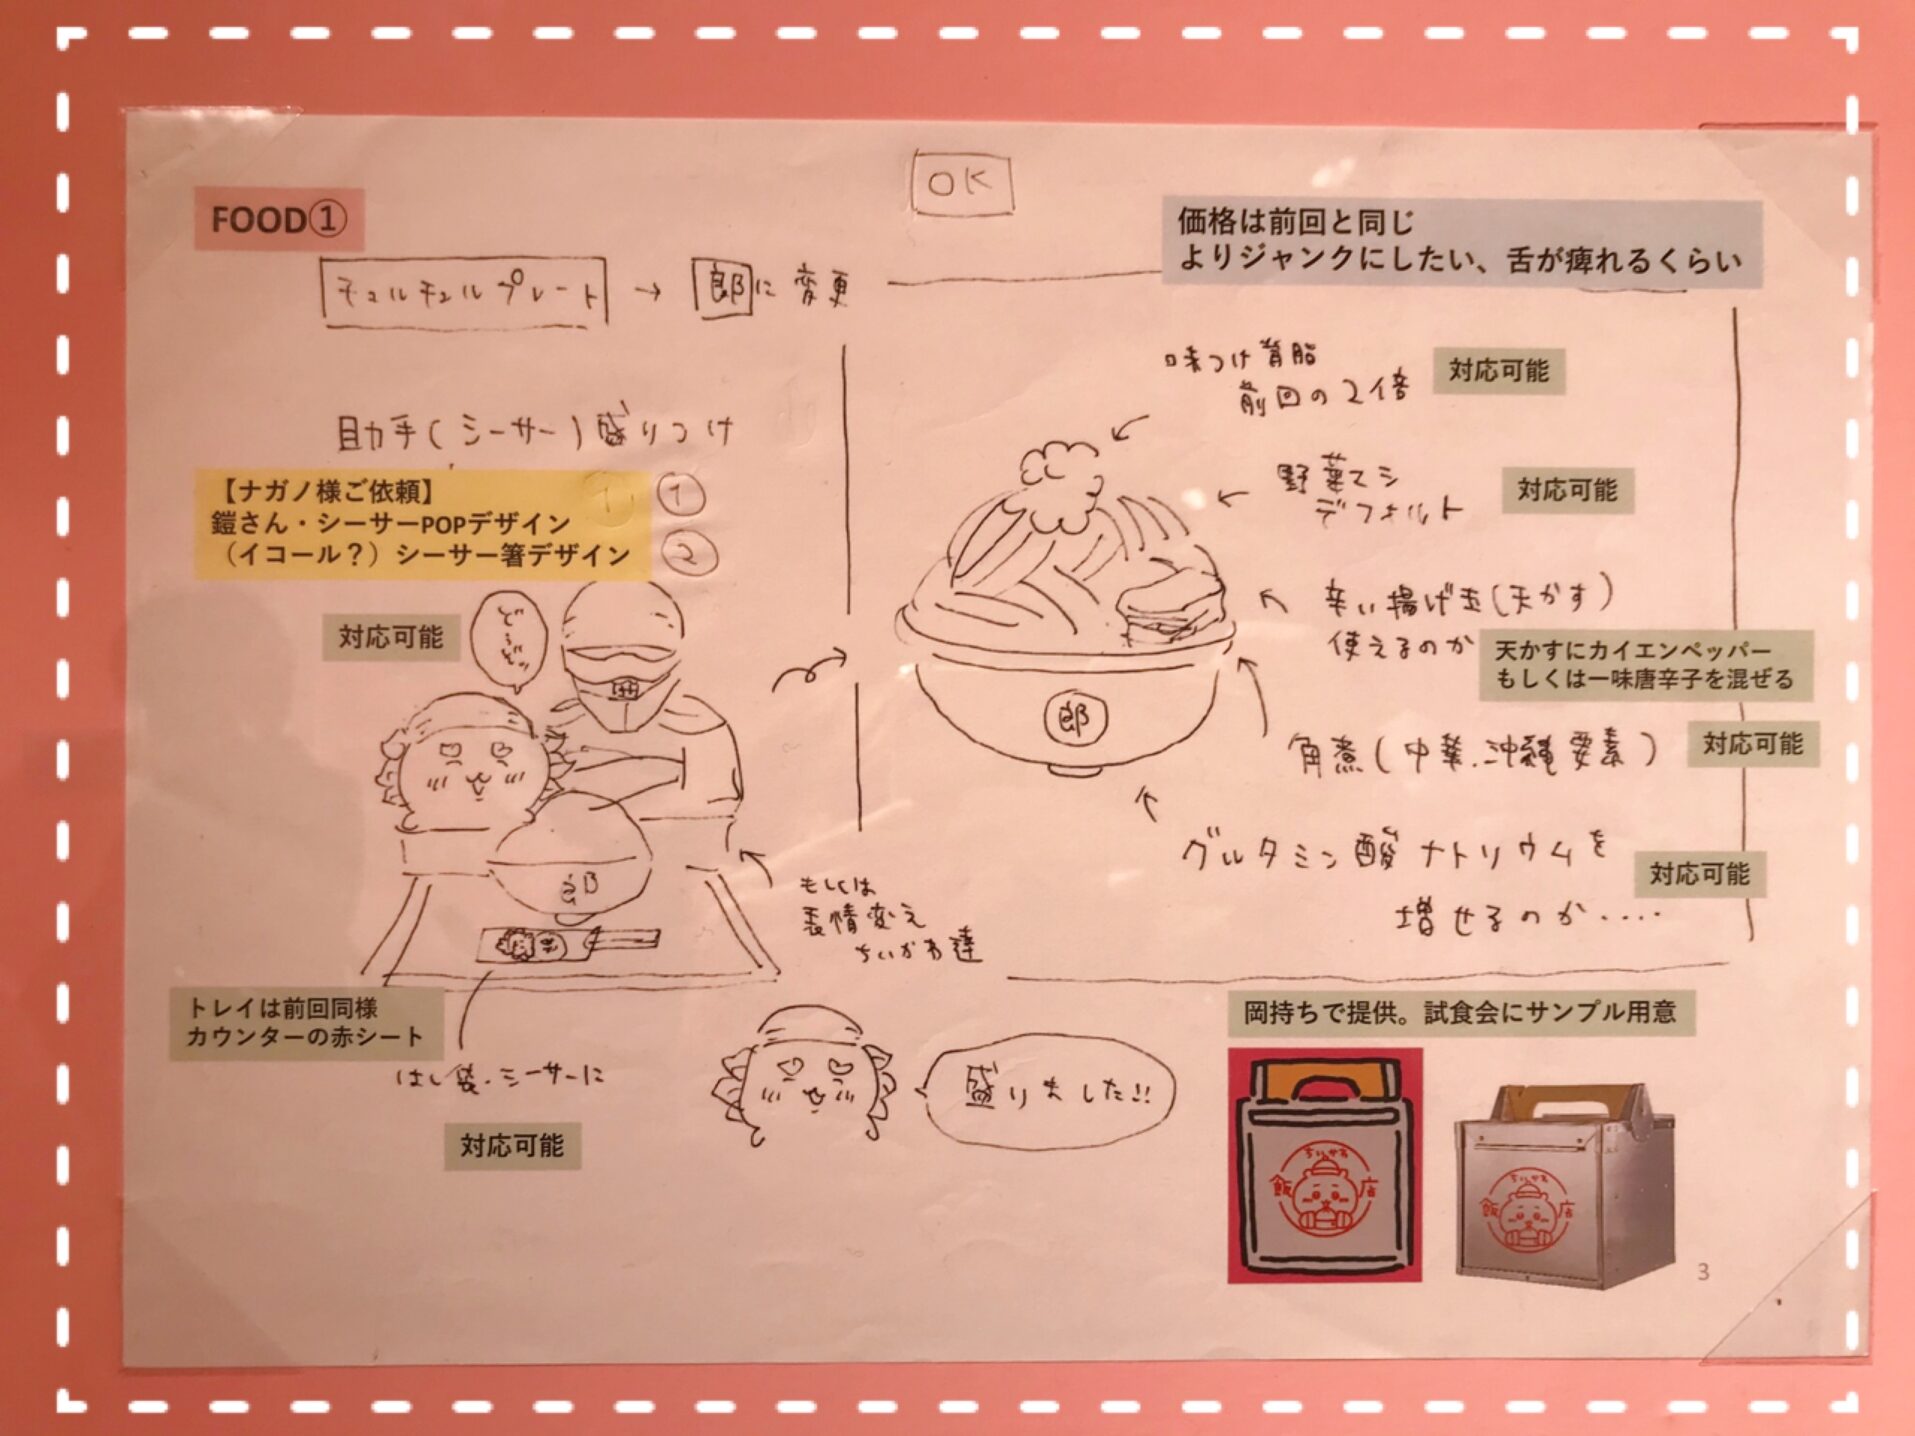 OK
FOOD①
価格は前回と同じ
よりジャンクにしたい、舌が痺れるくらい
チュルチュルプレート → 郎に変更
助手(シーサー)盛りつけ
【ナガノ様ご依頼】
鎧さん・シーサーPOPデザイン ①
（イコール？）シーサー箸デザイン ②
対応可能
どうぞッ
郎
もしくは
表情変え
ちいかわ達
トレイは前回同様
カウンターの赤シート
はし袋・シーサーに
対応可能
盛りました!!
味つけ背脂
前回の2倍
対応可能
野菜マシ
デフォルト
対応可能
辛い揚げ玉(天かす)
使えるのか
天かすにカイエンペッパー
もしくは一味唐辛子を混ぜる
郎
角煮(中華、沖縄要素)
対応可能
グルタミン酸ナトリウムを
増せるのか....
対応可能
岡持ちで提供。試食会にサンプル用意
ちいかわ
飯店
ちいかわ
飯店
3